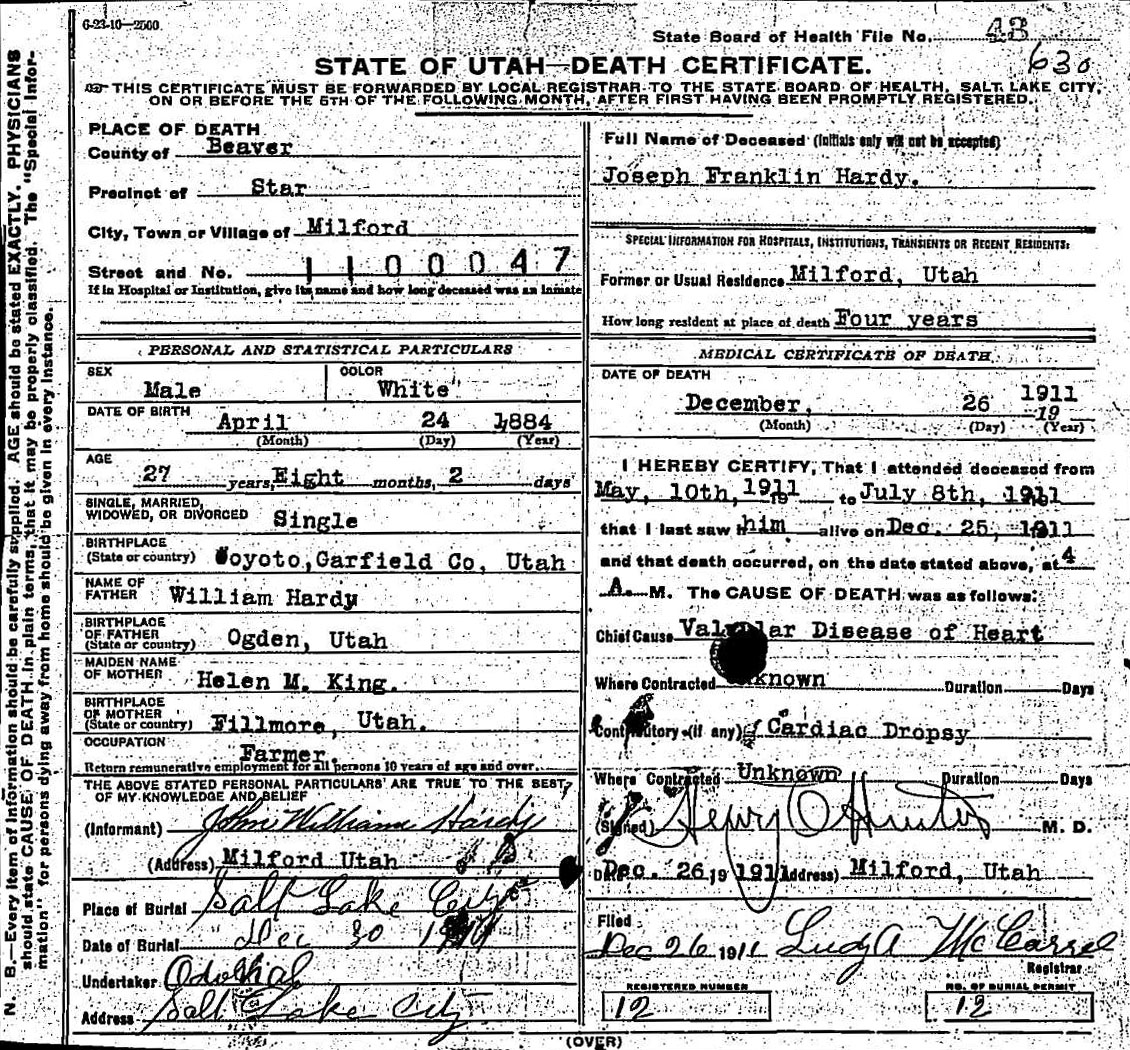 6-23-10—2500
State Board of Health File No. 43
630
STATE OF UTAH—DEATH CERTIFICATE.
THIS CERTIFICATE MUST BE FORWARDED BY LOCAL REGISTRAR TO THE STATE BOARD OF HEALTH, SALT LAKE CITY,
ON OR BEFORE THE 5TH OF THE FOLLOWING MONTH, AFTER FIRST HAVING BEEN PROMPTLY REGISTERED.
N. B.—Every item of information should be carefully supplied. AGE should be stated EXACTLY. PHYSICIANS
should state CAUSE OF DEATH in plain terms, that it may be properly classified. The "Special Infor-
mation" for persons dying away from home should be given in every instance.
PLACE OF DEATH
County of Beaver
Precinct of Star
City, Town or Village of Milford
Street and No. 1100047
If in Hospital or Institution, give its name and how long deceased was an inmate
PERSONAL AND STATISTICAL PARTICULARS
SEX Male
COLOR White
DATE OF BIRTH April 24 1884
(Month) (Day) (Year)
AGE 27 years, Eight months, 2 days
SINGLE, MARRIED,
WIDOWED, OR DIVORCED Single
BIRTHPLACE
(State or country) Coyoto, Garfield Co, Utah
NAME OF
FATHER William Hardy
BIRTHPLACE
OF FATHER
(State or country) Ogden, Utah
MAIDEN NAME
OF MOTHER Helen M. King.
BIRTHPLACE
OF MOTHER
(State or country) Fillmore, Utah.
OCCUPATION Farmer
Return remunerative employment for all persons 10 years of age and over.
THE ABOVE STATED PERSONAL PARTICULARS ARE TRUE TO THE BEST
OF MY KNOWLEDGE AND BELIEF
(Informant) John William Hardy
(Address) Milford Utah
Place of Burial Salt Lake City
Date of Burial Dec 30 1911
Undertaker
Address Salt Lake City
Full Name of Deceased (Initials only will not be accepted)
Joseph Franklin Hardy.
SPECIAL INFORMATION FOR HOSPITALS, INSTITUTIONS, TRANSIENTS OR RECENT RESIDENTS:
Former or Usual Residence Milford, Utah
How long resident at place of death Four years
MEDICAL CERTIFICATE OF DEATH
DATE OF DEATH
December, 26 1911
19
(Month) (Day) (Year)
I HEREBY CERTIFY, That I attended deceased from
May, 10th, 1911 to July 8th, 1911
that I last saw him alive on Dec. 25, 1911
and that death occurred, on the date stated above, at 4
A. M. The CAUSE OF DEATH was as follows:
Chief Cause Valvular Disease of Heart
Where Contracted Unknown Duration Days
Contributory (if any) Cardiac Dropsy
Where Contracted Unknown Duration Days
(Signed) Henry O Hunter M. D.
Dec. 26, 19 1911 (Address) Milford, Utah
Filed
Dec 26 1911 Lucy A McCarrel
Registrar
REGISTERED NUMBER
12
NO. OF BURIAL PERMIT
12
(OVER)